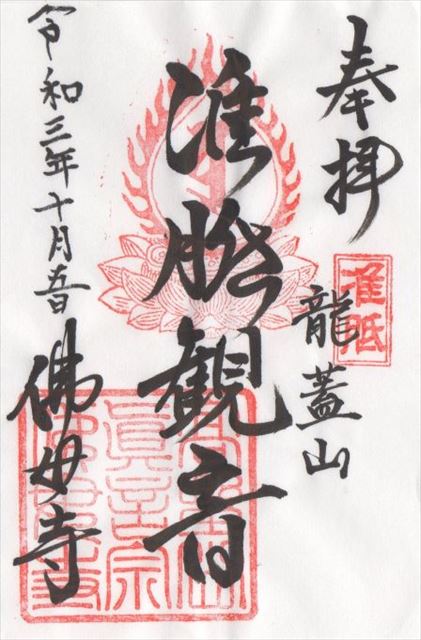 奉拝
准胝
龍蓋山
准胝観音
佛母寺
令和三年十月五日